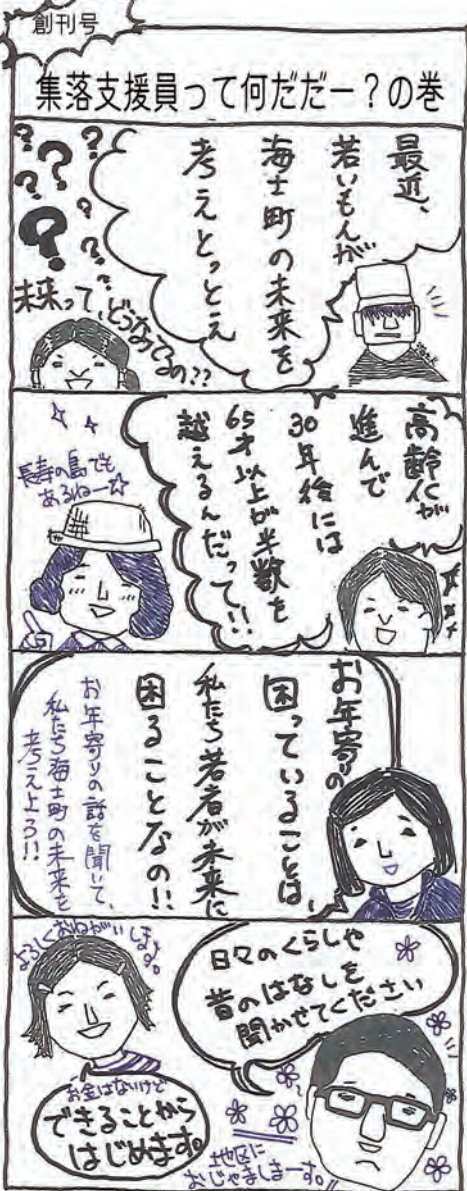 創刊号
集落支援員って何だだー？の巻
最近、
若いもんが
海士町の未来を
考えとっとえ
未来って、どうなってるの??
高齢化が
進んで
30年後には
65才以上が半数を
越えるんだって!!
長寿の島でも
あるねー☆
お年寄りの
困っていることは、
私たち若者が未来に
困ることなの!!
お年寄りの話を聞いて、
私たち海士町の未来を
考えよう!!
日々のくらしや
昔のはなしを
聞かせてください
よろしくおねがいします。
お金はないけど
できることから
はじめます。
地区に
おじゃましまーす。